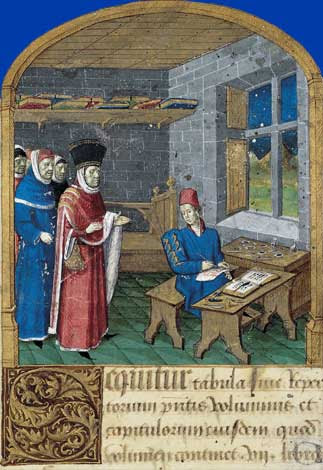 Sequitur tabula siue Reper
torium pntis voluminis et
capitulorum eiusdem quod
volumen continet vii libro